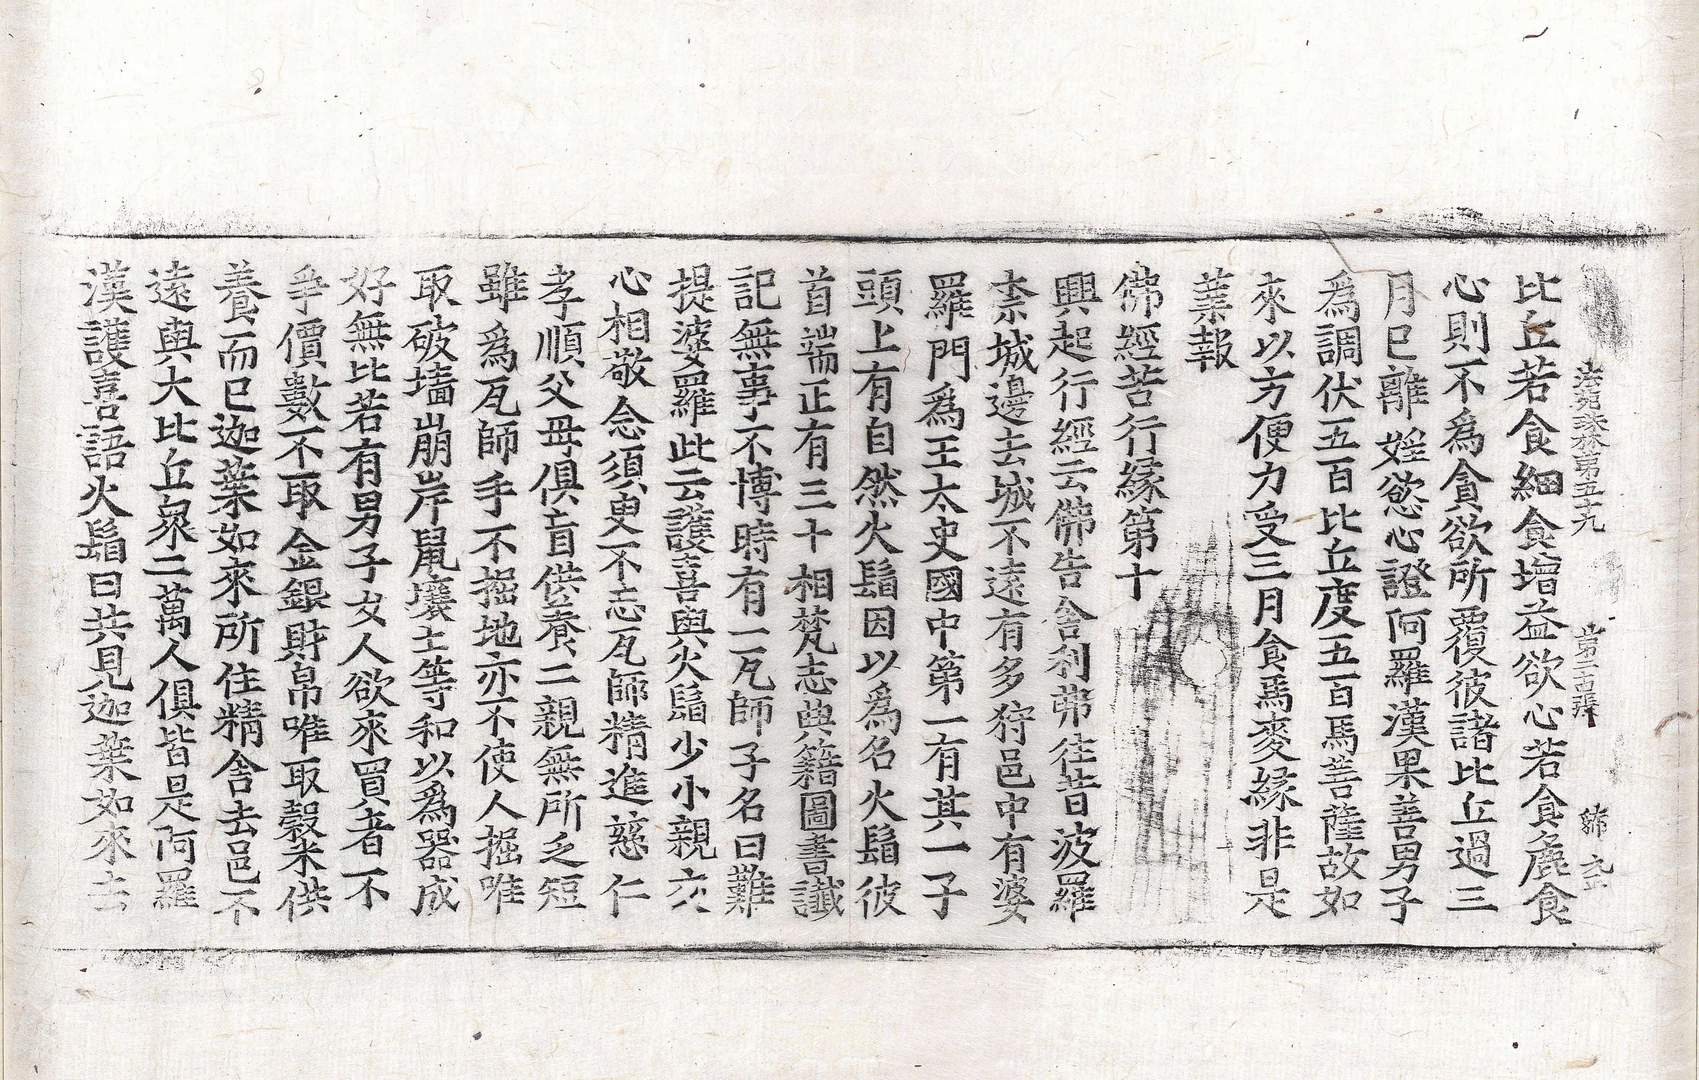 法苑珠林第五十九 第二十四張 綈
比丘若食細食增益欲心若食麁食
心則不爲貪欲所覆彼諸比丘過三
月已離婬慾心證阿羅漢果善男子
爲調伏五百比丘度五百馬菩薩故如
來以方便力受三月食馬麥緣非是
業報
佛經苦行緣第十
興起行經云佛告舍利弗往昔波羅
柰城邊去城不遠有多狩邑中有婆
羅門爲王太史國中第一有其一子
頭上有自然火鬘因以爲名火鬘彼
首端正有三十相梵志典籍圖書讖
記無事不博時有一瓦師子名曰難
提婆羅此云護喜與火鬘少小親交
心相敬念須臾不忘瓦師精進慈仁
孝順父母俱盲供養二親無所乏短
雖爲瓦師手不掘地亦不使人掘唯
取破墻崩岸鼠壤土等和以爲器成
好無比若有男子女人欲來買者不
爭價數不取金銀財帛唯取穀米供
養而已迦葉如來所住精舍去邑不
遠與大比丘衆二萬人俱皆是阿羅
漢護喜語火鬘曰共見迦葉如來去